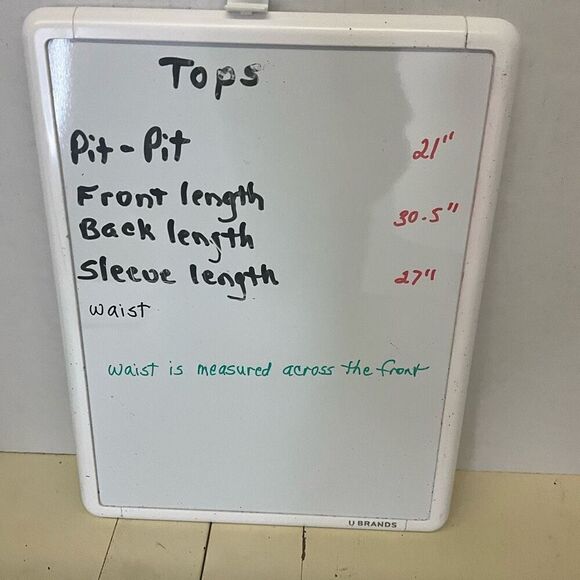 Tops
Pit-Pit 21"
Front length
30.5"
Back length
Sleeve length 27"
waist
waist is measured across the front
U BRANDS